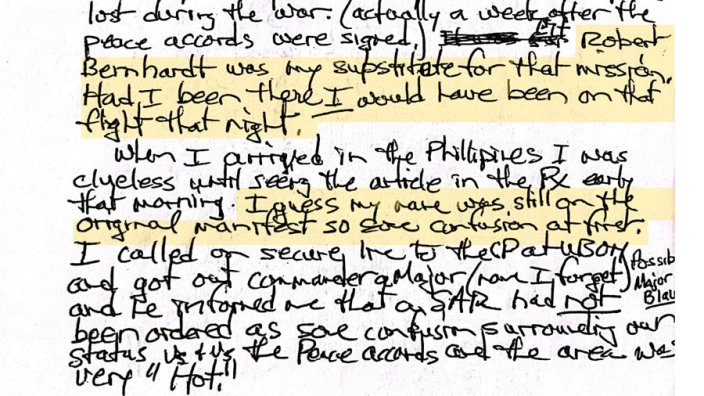 lost during the war. (actually a week after the
peace accords were signed.) Robert
Bernhardt was my substitute for that mission.
Had I been there I would have been on that
flight that night.
When I arrived in the Phillipines I was
clueless until seeing the article in the Px early
that morning. I guess my name was still on the
original manifest so some confusion at first.
I called on secure line to the CP at UBON
and got out commander a Major (name I forget) Possib
Major
Blau
and he informed me that a SAR had not
been ordered as some confusion surrounding our
status vs the Peace accords and the area was
very "Hot."